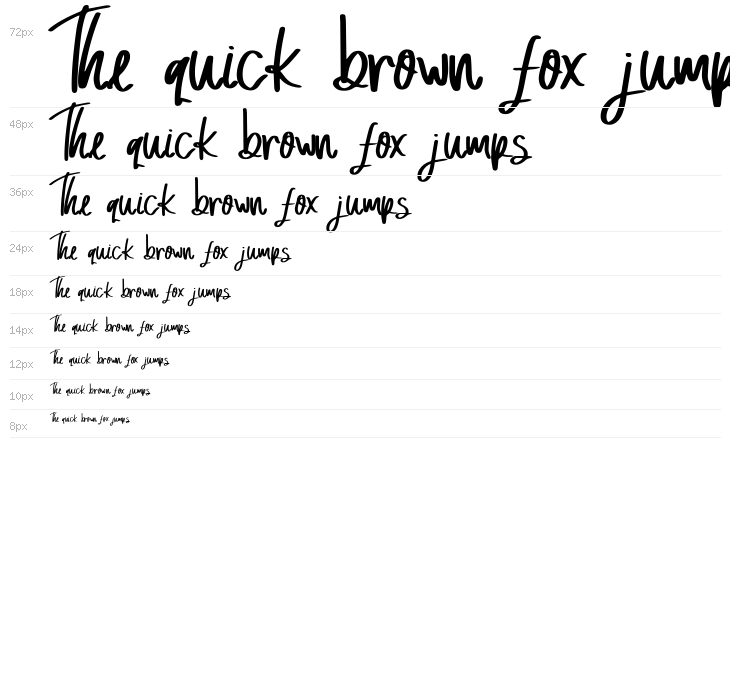 72px The quick brown fox jump
48px The quick brown fox jumps
36px The quick brown fox jumps
24px The quick brown fox jumps
18px The quick brown fox jumps
14px The quick brown fox jumps
12px The quick brown fox jumps
10px The quick brown fox jumps
8px The quick brown fox jumps